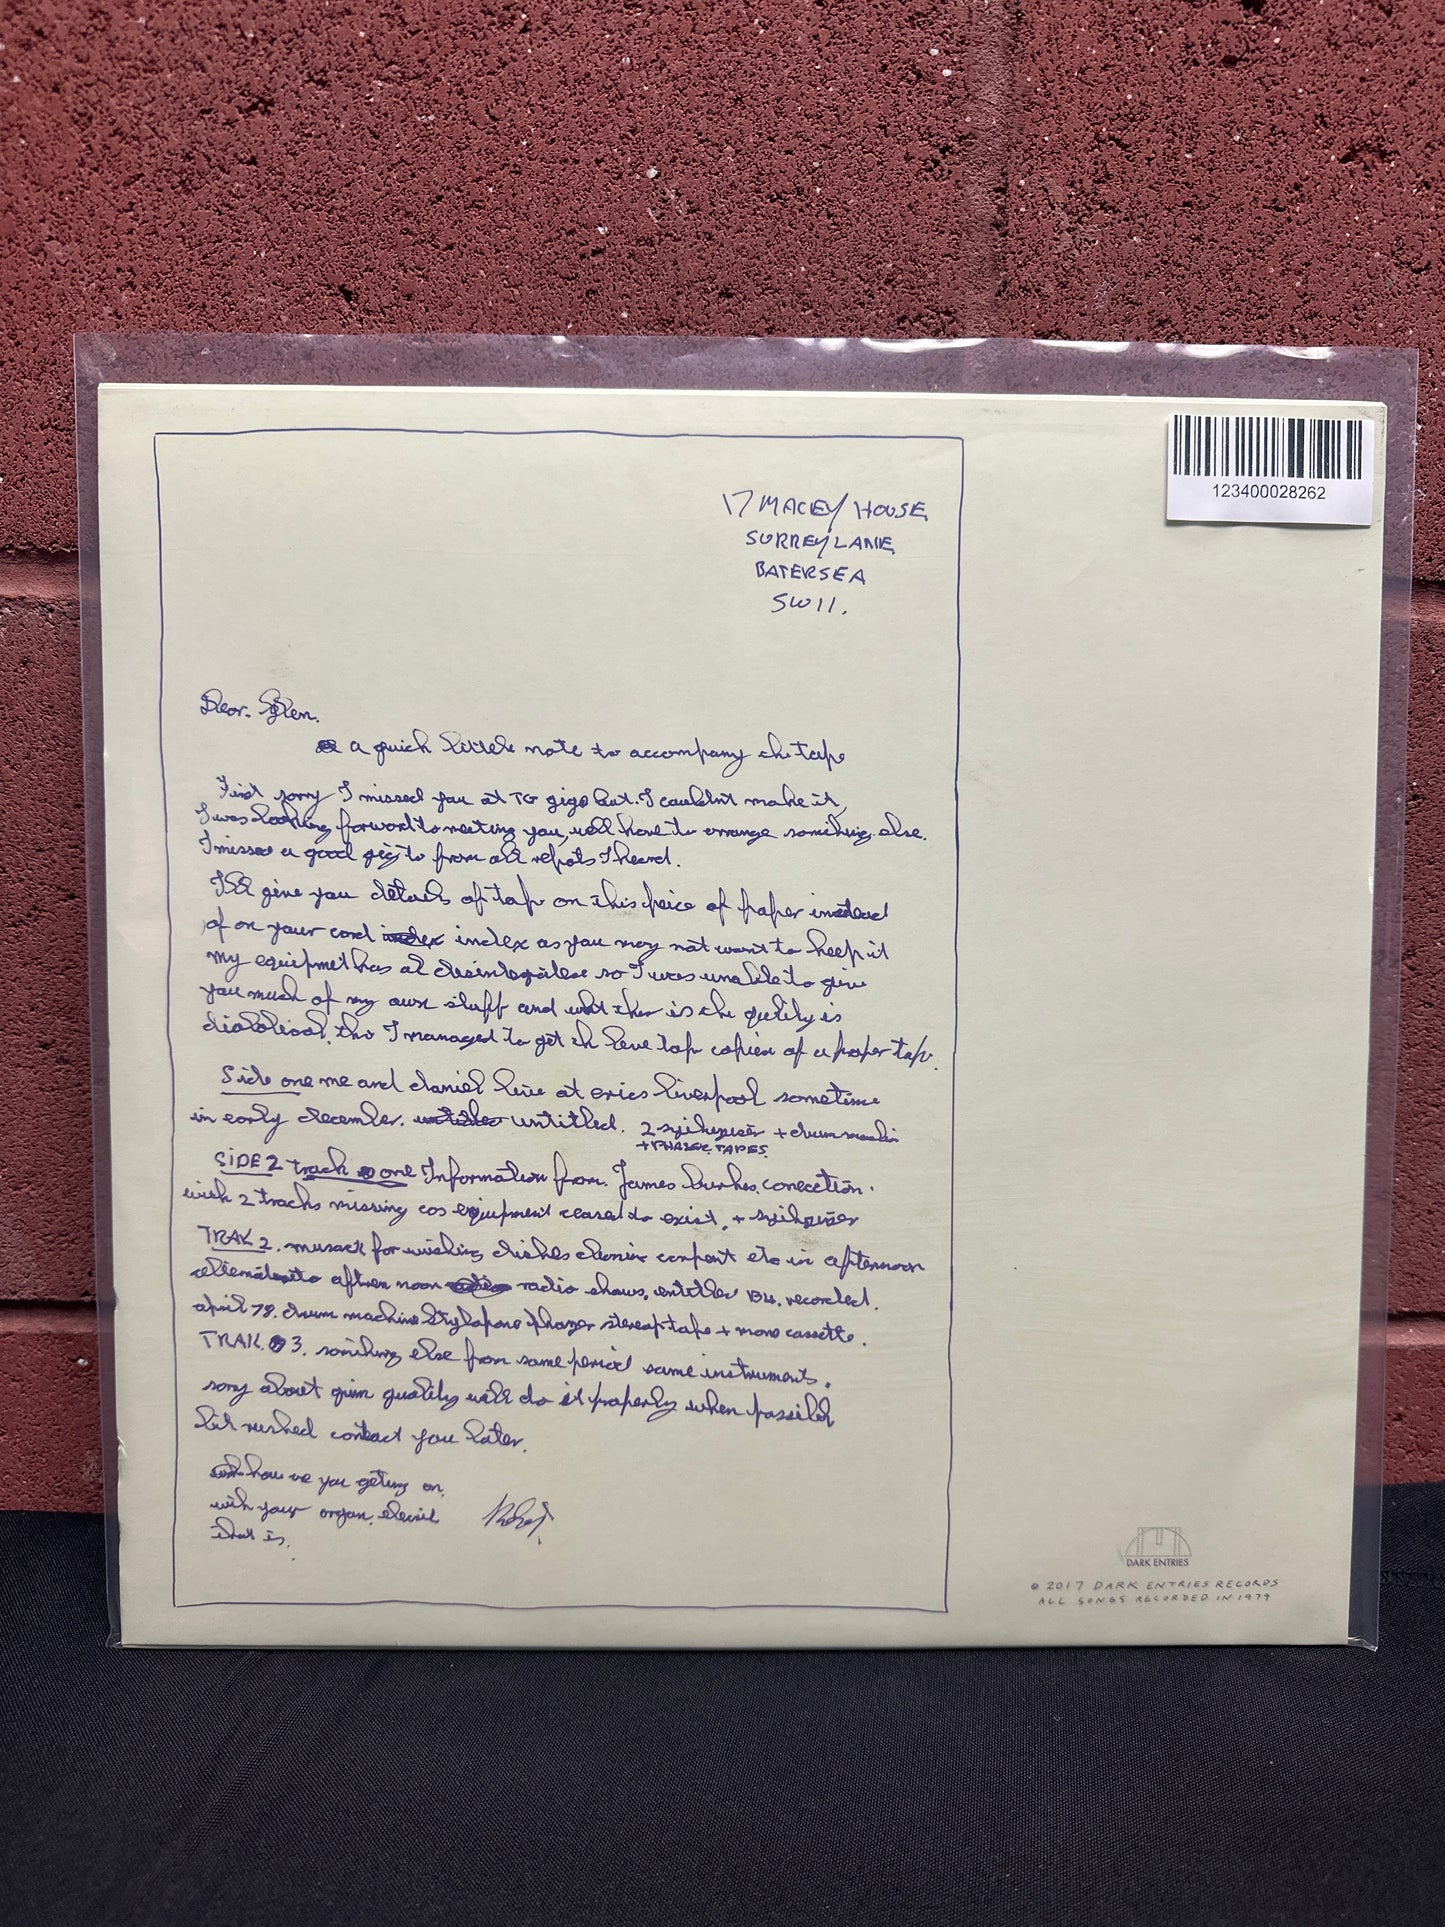 123400028262
17 MACEY HOUSE
SURREY LANE
BATERSEA
SW11.
Dear. Glen.
a quick little note to accompany the tape
First sorry I missed you at TG gigs but. I couldnt make it,
I was looking forward to meeting you, will have to arrange something else.
I missed a good gig to from all repots I heard.
I'll give you details of tape on this peice of paper instead
of on your card index as you may not want to keep it
my equipmet has al so I was unable to give
you much of my own stuff and what ther is the qulity is
diabolical. tho I managed to get th live tap copied of a proper tap.
Side one me and daniel live at erics liverpool sometime
in early december. untitled. 2 + drum machin
+ TAPES.
SIDE 2 track one Information from. James burkes. conection.
with 2 tracks missing cos equipment ceased to exist. +
TRAK 2. musack for wishing dishes etc in afternoon
after noon radio shows. recorded.
april 78. drum machine Stylapone phazer tape + mono cassette.
TRAK. 3. somthing else from same period same instruments.
sory about quality will do it properly when
bit rushed contact you later.
how you geting on.
with your organ.
that is.
DARK ENTRIES
© 2017 DARK ENTRIES RECORDS
ALL SONGS RECORDED IN 1979